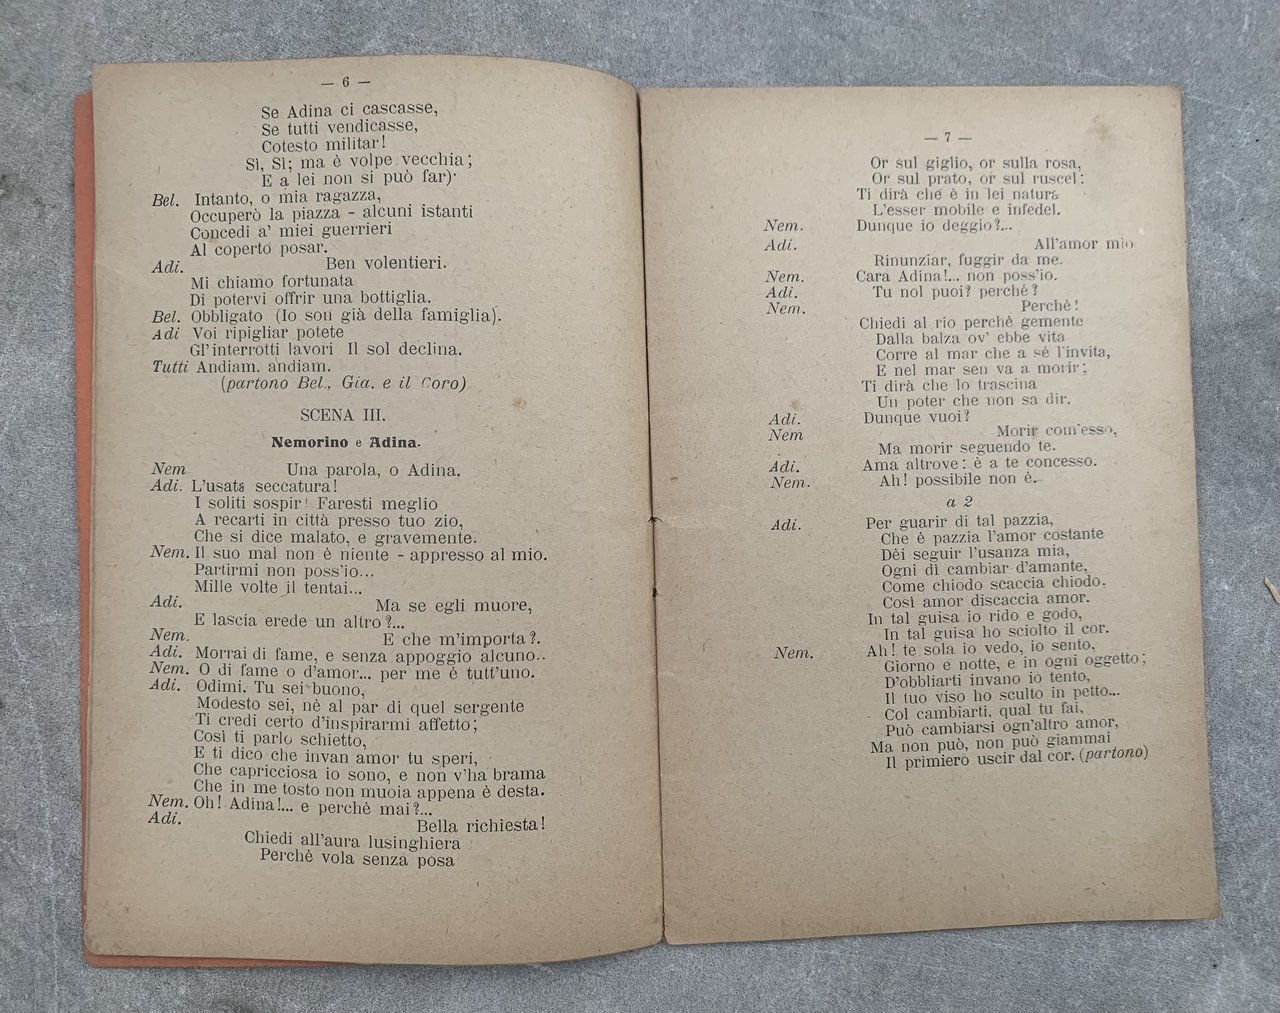 — 6 —
Se Adina ci cascasse,
Se tutti vendicasse,
Cotesto militar!
Sì, Sì; ma è volpe vecchia;
E a lei non si può far)·
Bel. Intanto, o mia ragazza,
Occuperò la piazza - alcuni istanti
Concedi a' miei guerrieri
Al coperto posar.
Adi. Ben volentieri.
Mi chiamo fortunata
Di potervi offrir una bottiglia.
Bel. Obbligato (Io son già della famiglia).
Adi Voi ripigliar potete
Gl'interrotti lavori Il sol declina.
Tutti Andiam, andiam.
(partono Bel., Gia. e il Coro)
SCENA III.
Nemorino e Adina.
Nem Una parola, o Adina.
Adi. L'usata seccatura!
I soliti sospir! Faresti meglio
A recarti in città presso tuo zio,
Che si dice malato, e gravemente.
Nem. Il suo mal non è niente - appresso al mio.
Partirmi non poss'io...
Mille volte il tentai...
Adi. Ma se egli muore,
E lascia erede un altro?...
Nem. E che m'importa?.
Adi. Morrai di fame, e senza appoggio alcuno..
Nem. O di fame o d'amor... per me è tutt'uno.
Adi. Odimi. Tu sei buono,
Modesto sei, nè al par di quel sergente
Ti credi certo d'inspirarmi affetto;
Così ti parlo schietto,
E ti dico che invan amor tu speri,
Che capricciosa io sono, e non v'ha brama
Che in me tosto non muoia appena è desta.
Nem. Oh! Adina!... e perchè mai?...
Adi. Bella richiesta!
Chiedi all'aura lusinghiera
Perchè vola senza posa
— 7 —
Or sul giglio, or sulla rosa,
Or sul prato, or sul ruscel:
Ti dirà che è in lei natura
L'esser mobile e infedel.
Nem. Dunque io deggio?...
Adi. All'amor mio
Rinunziar, fuggir da me.
Nem. Cara Adina!... non poss'io.
Adi. Tu nol puoi? perchè?
Nem. Perchè!
Chiedi al rio perchè gemente
Dalla balza ov' ebbe vita
Corre al mar che a sè l'invita,
E nel mar sen va a morir;
Ti dirà che lo trascina
Un poter che non sa dir.
Adi. Dunque vuoi?
Nem Morir com'esso,
Ma morir seguendo te.
Adi. Ama altrove: è a te concesso.
Nem. Ah! possibile non è.
a 2
Adi. Per guarir di tal pazzia,
Che è pazzia l'amor costante
Dèi seguir l'usanza mia,
Ogni dì cambiar d'amante,
Come chiodo scaccia chiodo.
Così amor discaccia amor.
In tal guisa io rido e godo,
In tal guisa ho sciolto il cor.
Nem. Ah! te sola io vedo, io sento,
Giorno e notte, e in ogni oggetto;
D'obbliarti invano io tento,
Il tuo viso ho sculto in petto...
Col cambiarti, qual tu fai,
Può cambiarsi ogn'altro amor,
Ma non può, non può giammai
Il primiero uscir dal cor. (partono)